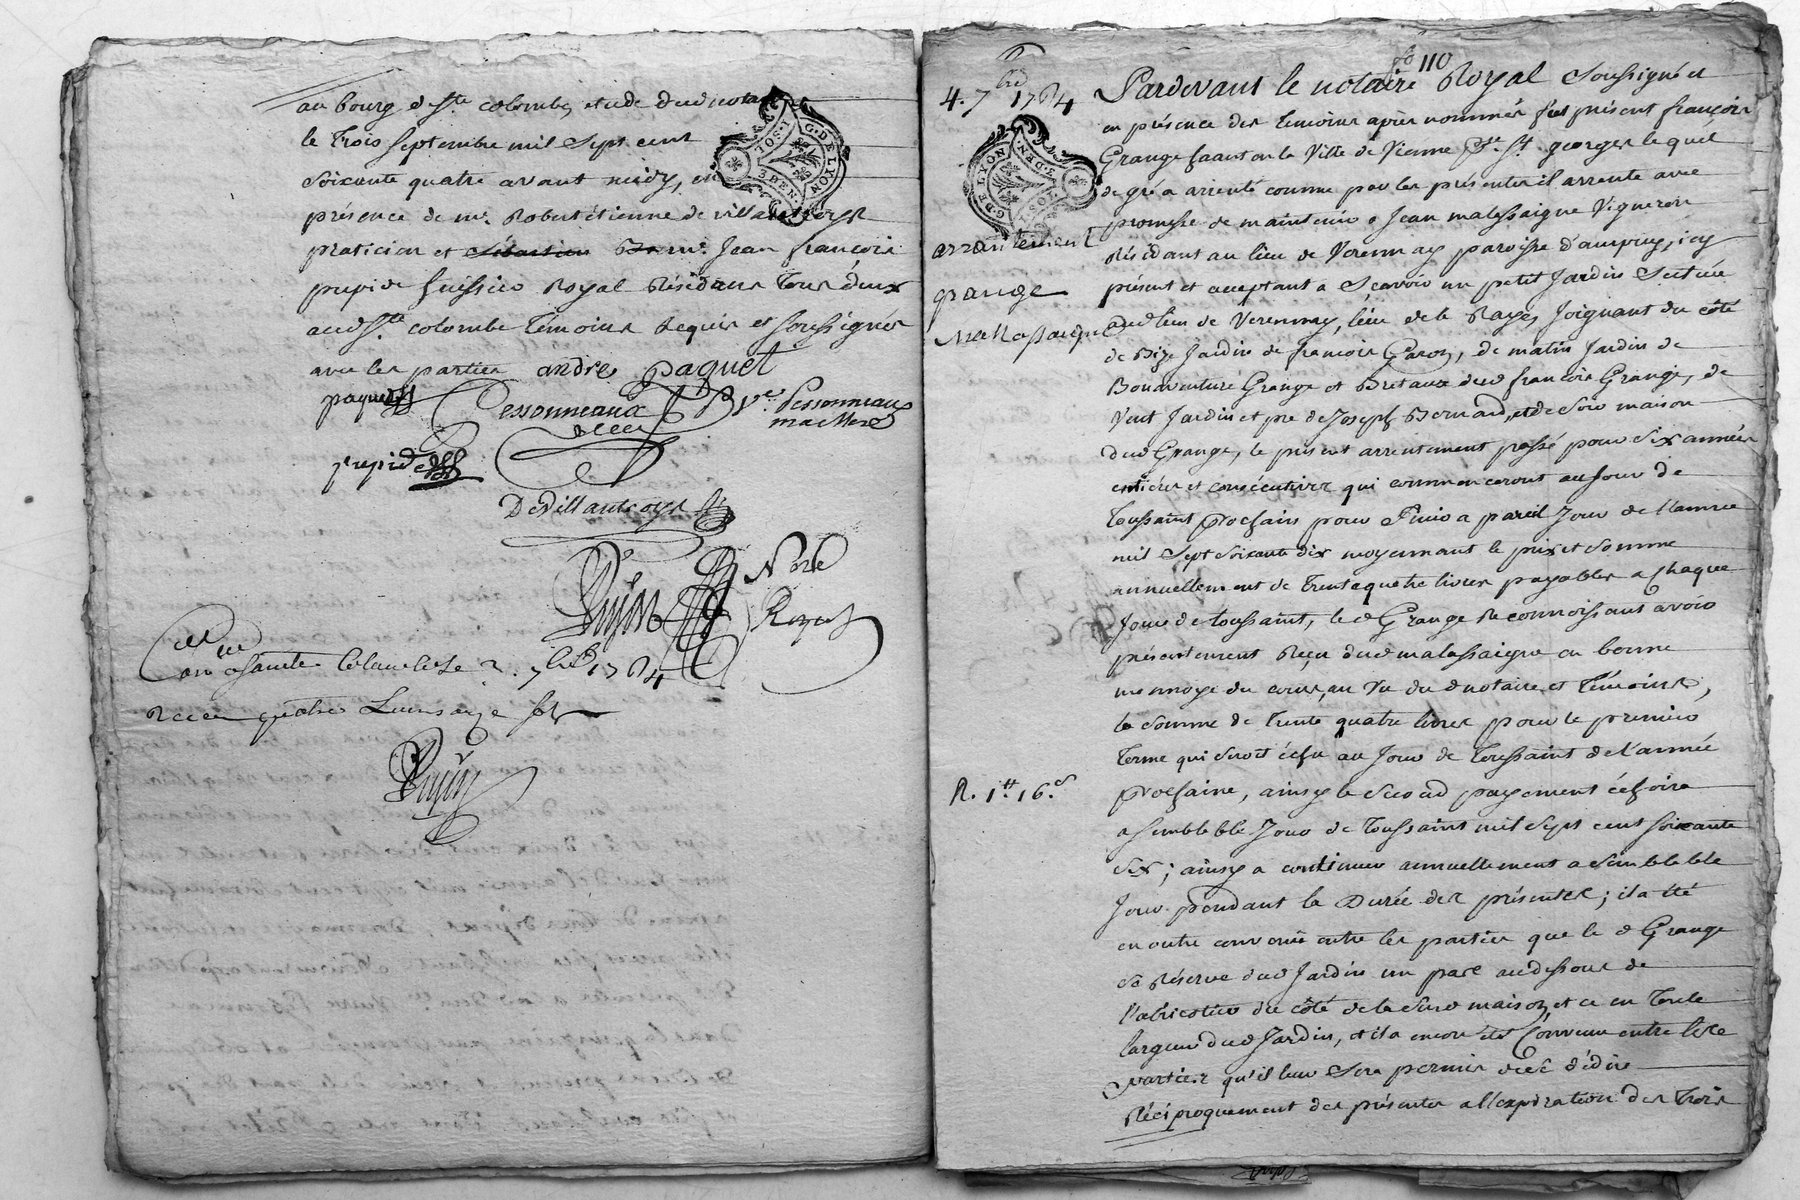 au bourg de Ste colombe, etude dud notaire
le trois septembre mil sept cent
soixante quatre avant midy, en
présence de mr. Robert étienne de villantroys
praticien et sébastien mr. Jean françois
prepié huissier Royal Résidans tous deux
aud Ste colombe témoins requis et soussignés
avec les parties andré paquet
paquet Pessonneaux Ve. Pessonneaux
machere
prepié
DeVillantroys
Notre
Royal
Cellé
a Sainte Colombe le 7bre 1764
Reçu quatre Livres seize sols
fo 110
4. 7bre 1764
G. DE LYON
3 DEN.
arrantement
grange
Mallassaigne
R. 1tt 16s
Pardevant le notaire Royal Soussigné et
en présence des témoins après nommés fut présent françois
Grange habitant la Ville de Vienne psse St georges lequel
de gré a arrenté comme par les présentes il arrente avec
promesse de maintenir a Jean malassaigne Vigneron
Résidant au lieu de Verennay paroisse d'ampuy, icy
présent et acceptant a Scavoir un petit Jardin Scitué
aud lieu de Verennay, lieu de la Raye, Joignant du côté
de Bize Jardin de francois Garon, de matin Jardin de
Bonaventure Grange et Bretaux dud françois Grange, de
Vent Jardin et pré de Joseph Bernard, et de Soir maison
dud Grange, le présent arrentement passé pour Six années
entières et consécutives qui commenceront au Jour de
toussaint prochain pour Finir a pareil Jour de l'année
mil Sept Soixante dix moyennant le prix et Somme
annuellement de trente quatre livres payables a chaque
Jour de toussaint, le d Grange Reconnoissant avoir
présentement Reçu dud malassaigne en bonne
monnoye du cours, au Vu du d notaire et témoins,
la Somme de trente quatre livres pour le premier
terme qui Seroit échu au Jour de Toussaint de l'année
prochaine, ainsy le Second payement échoira
a Semblable Jour de Toussaint mil Sept cent soixante
Six; ainsy a continuer annuellement a Semblable
Jour pendant la Durée des présentes; il a été
en outre convenu entre les parties que le d Grange
Se Réserve dud Jardin un parc audessous de
l'abricotier du côté de la Sud maison, et ce en toute
largeur dud Jardin, et il a encore été Convenu entre les
parties qu'il leur Sera permis de Se dédire
Réciproquement des présentes a l'expiration des trois